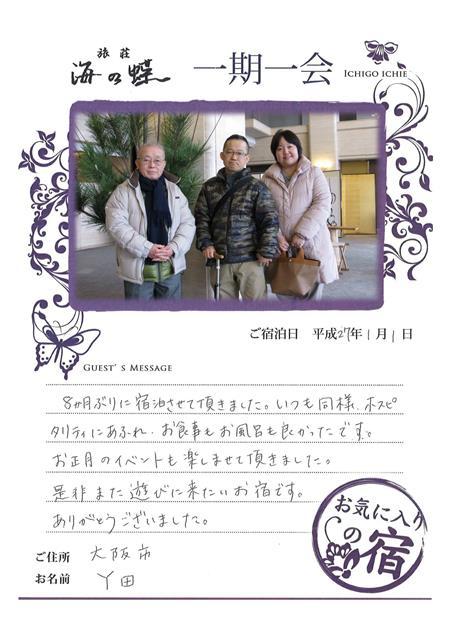 旅荘
海の蝶
一期一会
ICHIGO ICHIE
ご宿泊日 平成27年1月1日
GUEST'S MESSAGE
8ヶ月ぶりに宿泊させて頂きました。いつも同様、ホスピ
タリティにあふれ、お食事もお風呂も良かったです。
お正月のイベントも楽しませて頂きました。
是非また遊びに来たいお宿です。
ありがとうございました。
お気に入り
の宿
ご住所 大阪市
お名前 丫田